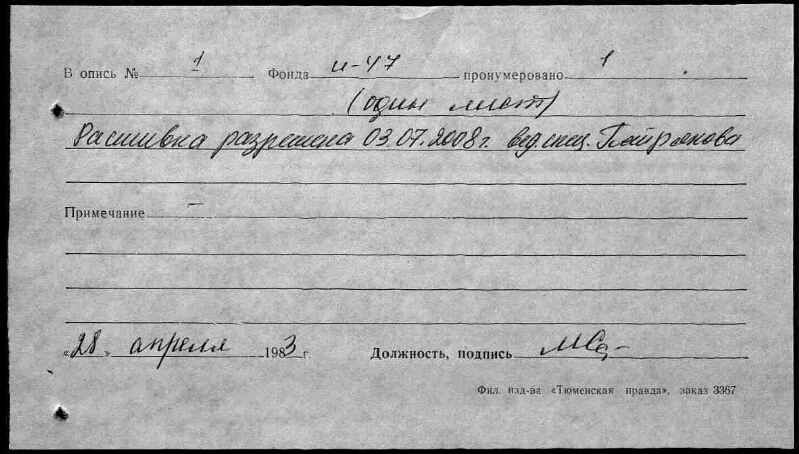 В опись № 1 Фонда И-47 пронумеровано 1
(один лист)
Расшивка разрешена 03.07.2008г. вед.спец.
Примечание –
«28» апреля 1983 г Должность, подпись
Фил. изд-ва «Тюменская правда», заказ 3367